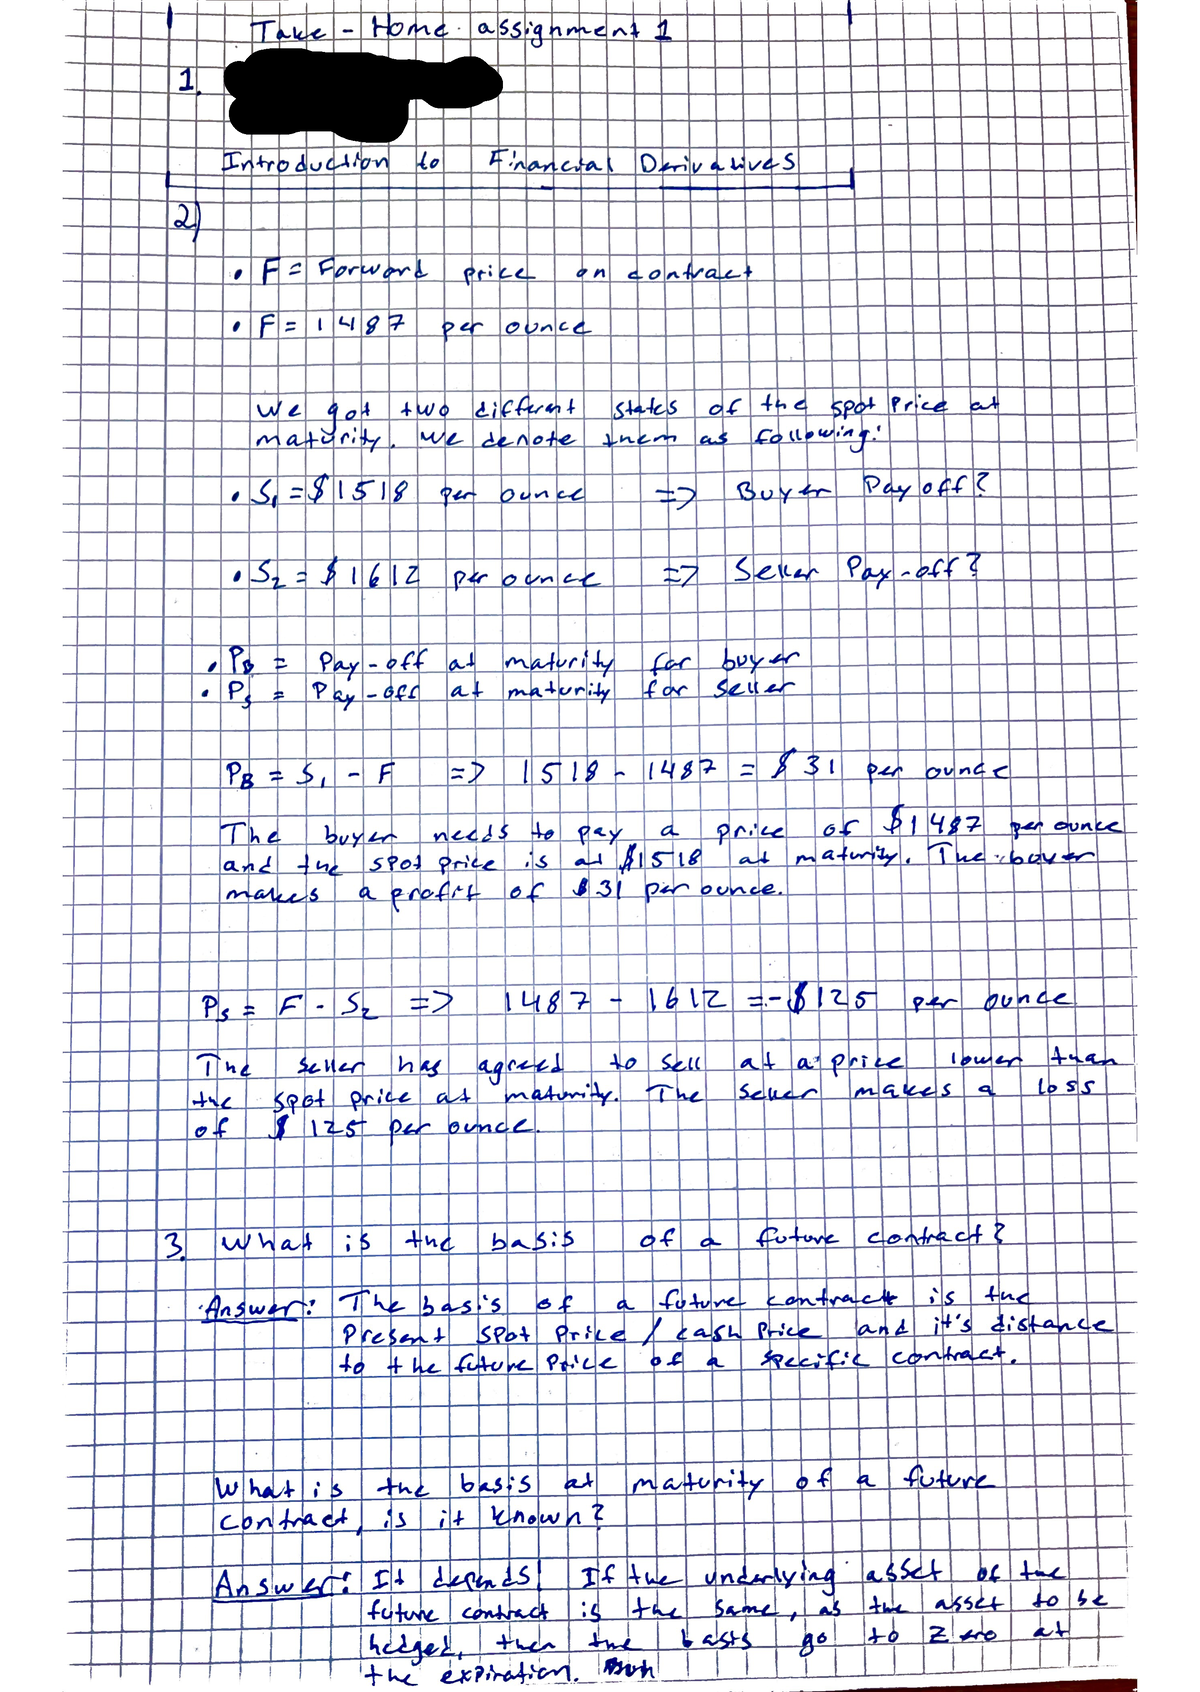 Take - Home assignment 1
1.
Introduction to Financial Derivatives
2)
• F = Forward price on contract
• F = 1487 per ounce
We got two different states of the spot Price at
maturity. We denote them as following:
• S1 = $1518 per ounce => Buyer Pay off?
• S2 = $1612 per ounce => Seller Pay-off?
• PB = Pay-off at maturity for buyer
• Ps = Pay-off at maturity for seller
PB = S1 - F => 1518 - 1487 = $31 per ounce
The buyer needs to pay a price of $1487 per ounce
and the spot price is at $1518 at maturity. The buyer
makes a profit of $31 per ounce.
Ps = F - S2 => 1487 - 1612 = -$125 per ounce
The seller has agreed to sell at a price lower than
the spot price at maturity. The seller makes a loss
of $125 per ounce.
3. What is the basis of a future contract?
Answer: The basis of a future contract is the
Present spot Price / cash Price and it's distance
to the future Price of a specific contract.
What is the basis at maturity of a future
contract, is it known?
Answer: It depends! If the underlying asset of the
future contract is the same, as the asset to be
hedged, then the basis go to zero at
the expiration.